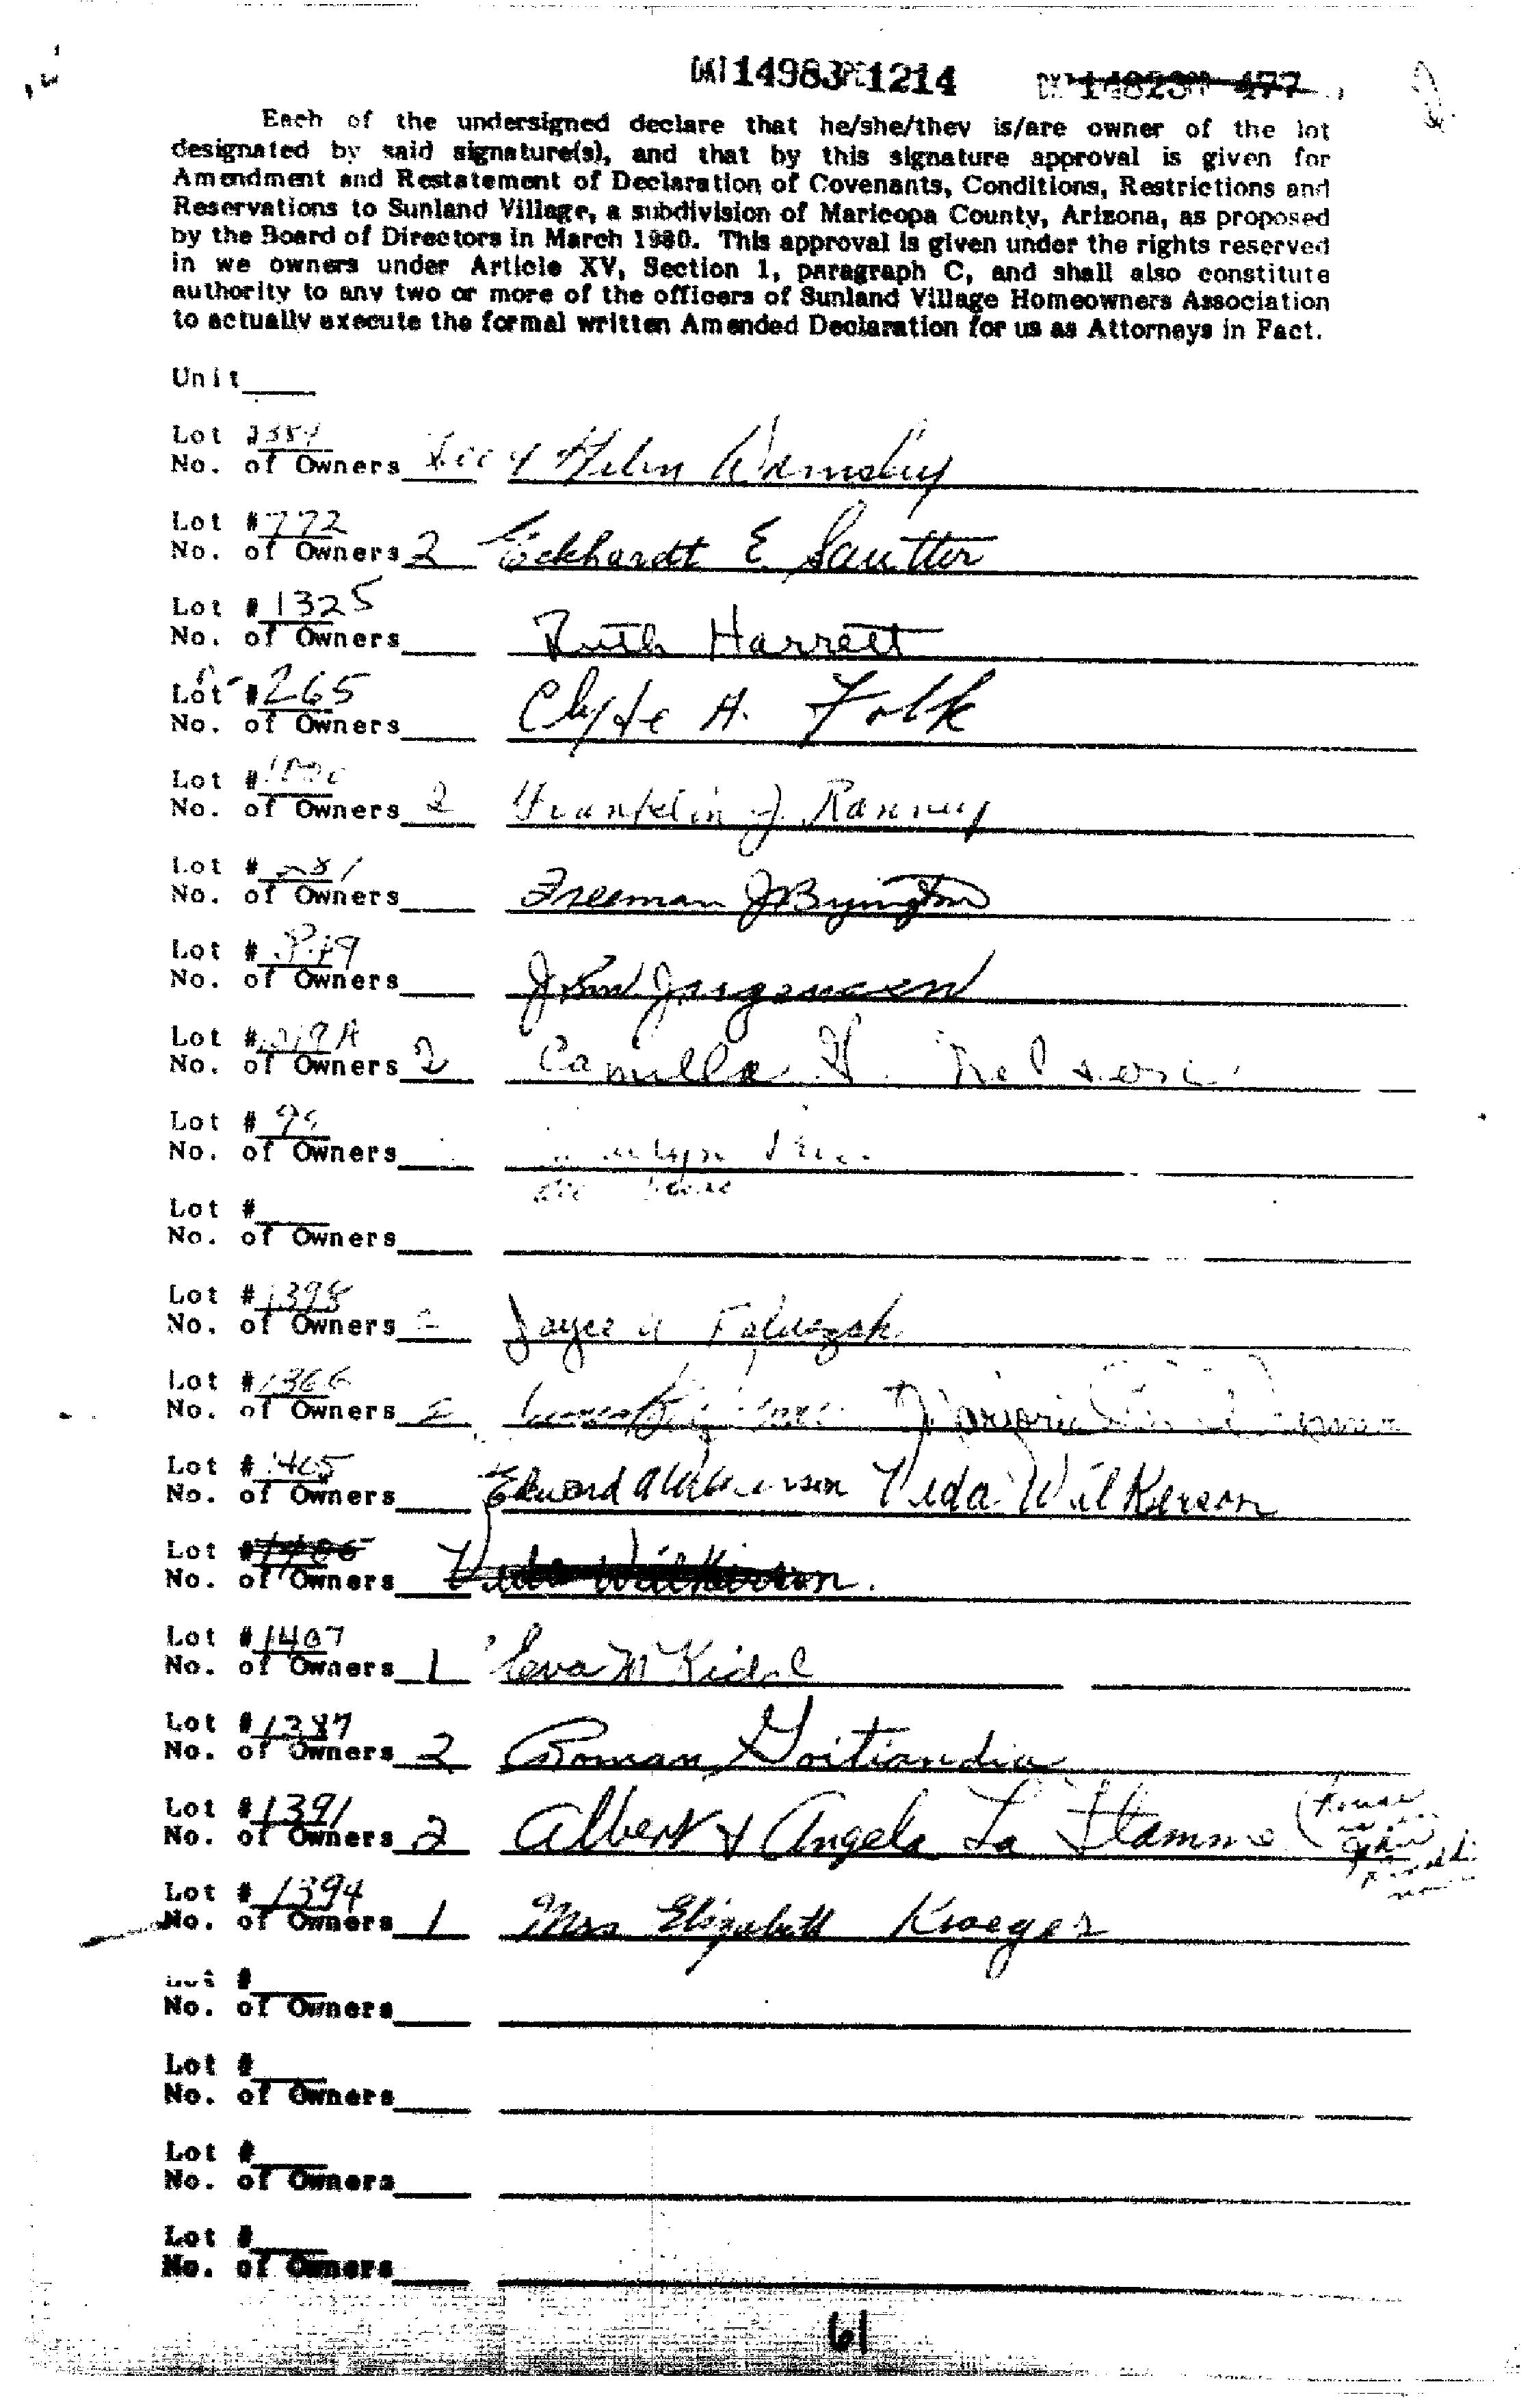 14983 1214
Each of the undersigned declare that he/she/they is/are owner of the lot
designated by said signature(s), and that by this signature approval is given for
Amendment and Restatement of Declaration of Covenants, Conditions, Restrictions and
Reservations to Sunland Village, a subdivision of Maricopa County, Arizona, as proposed
by the Board of Directors in March 1980. This approval is given under the rights reserved
in we owners under Article XV, Section 1, paragraph C, and shall also constitute
authority to any two or more of the officers of Sunland Village Homeowners Association
to actually execute the formal written Amended Declaration for us as Attorneys in Fact.
Unit
Lot #
No. of Owners Helen Wamsley
Lot #772
No. of Owners 2 Eckhardt E Sautter
Lot #1325
No. of Owners Ruth Harrett
Lot #265
No. of Owners Clyde A. Folk
Lot #
No. of Owners 2 Franklin J. Ranney
Lot #
No. of Owners Freeman J Byington
Lot #
No. of Owners John Jorgensen
Lot #
No. of Owners 2 Camilla H. Nelson
Lot #
No. of Owners
Lot #
No. of Owners
Lot #1398
No. of Owners 2 Joyce
Lot #1366
No. of Owners 2 Marjorie
Lot #1405
No. of Owners Edward A Wilkerson Veda Wilkerson
Lot #1406
No. of Owners Veda Wilkerson.
Lot #1407
No. of Owners 1 Leva M
Lot #1387
No. of Owners 2 Roman Goitiandia
Lot #1391
No. of Owners 2 Albert & Angela La Flamme (house
Lot #1394
No. of Owners 1 Mrs Elizabeth Kroeger
Lot #
No. of Owners
Lot #
No. of Owners
Lot #
No. of Owners
Lot #
No. of Owners
61